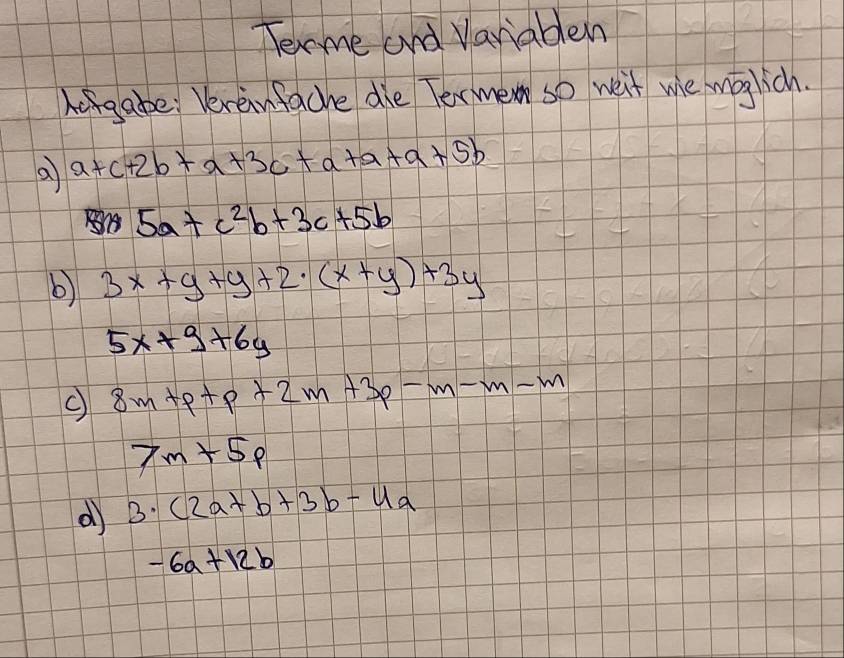 Terme und Variablen
Aufgabe: Vereinfache die Termen so weit wie möglich.
a) a+c+2b+a+3c+a+a+a+5b
5a+c²b+3c+5b
b) 3x+y+y+2·(x+y)+3y
5x+9+6y
c) 8m+p+p+2m+3p-m-m-m
7m+5p
d) 3·(2a+b+3b-4a
-6a+12b